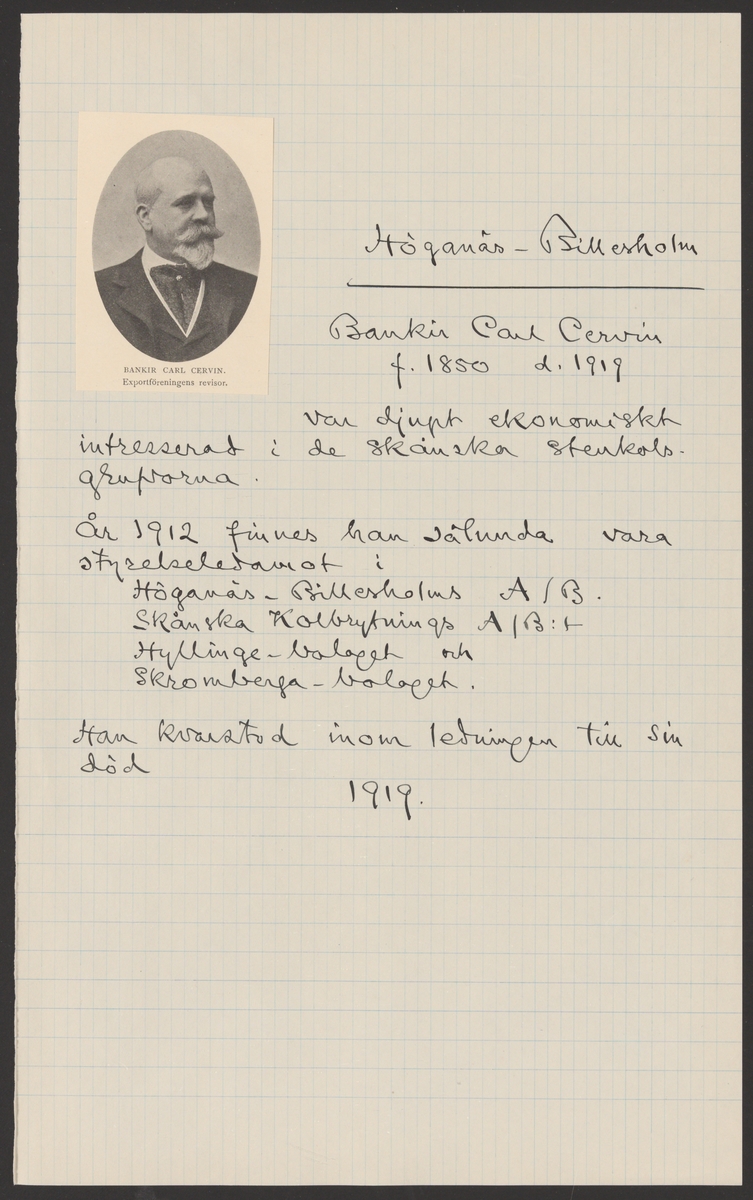 Höganäs - Billesholm
BANKIR CARL CERVIN.
Exportföreningens revisor.
Bankir Carl Cervin
f. 1850 d. 1919
var djupt ekonomiskt
intresserad i de skånska stenkols-
gruvorna.
År 1912 finnes han sålunda vara
styrelseledamot i
Höganäs - Billesholms A/B.
Skånska Kolbrytnings A/B:t
Hyllinge - bolaget och
Skromberga - bolaget.
Han kvarstod inom ledningen till sin
död
1919.